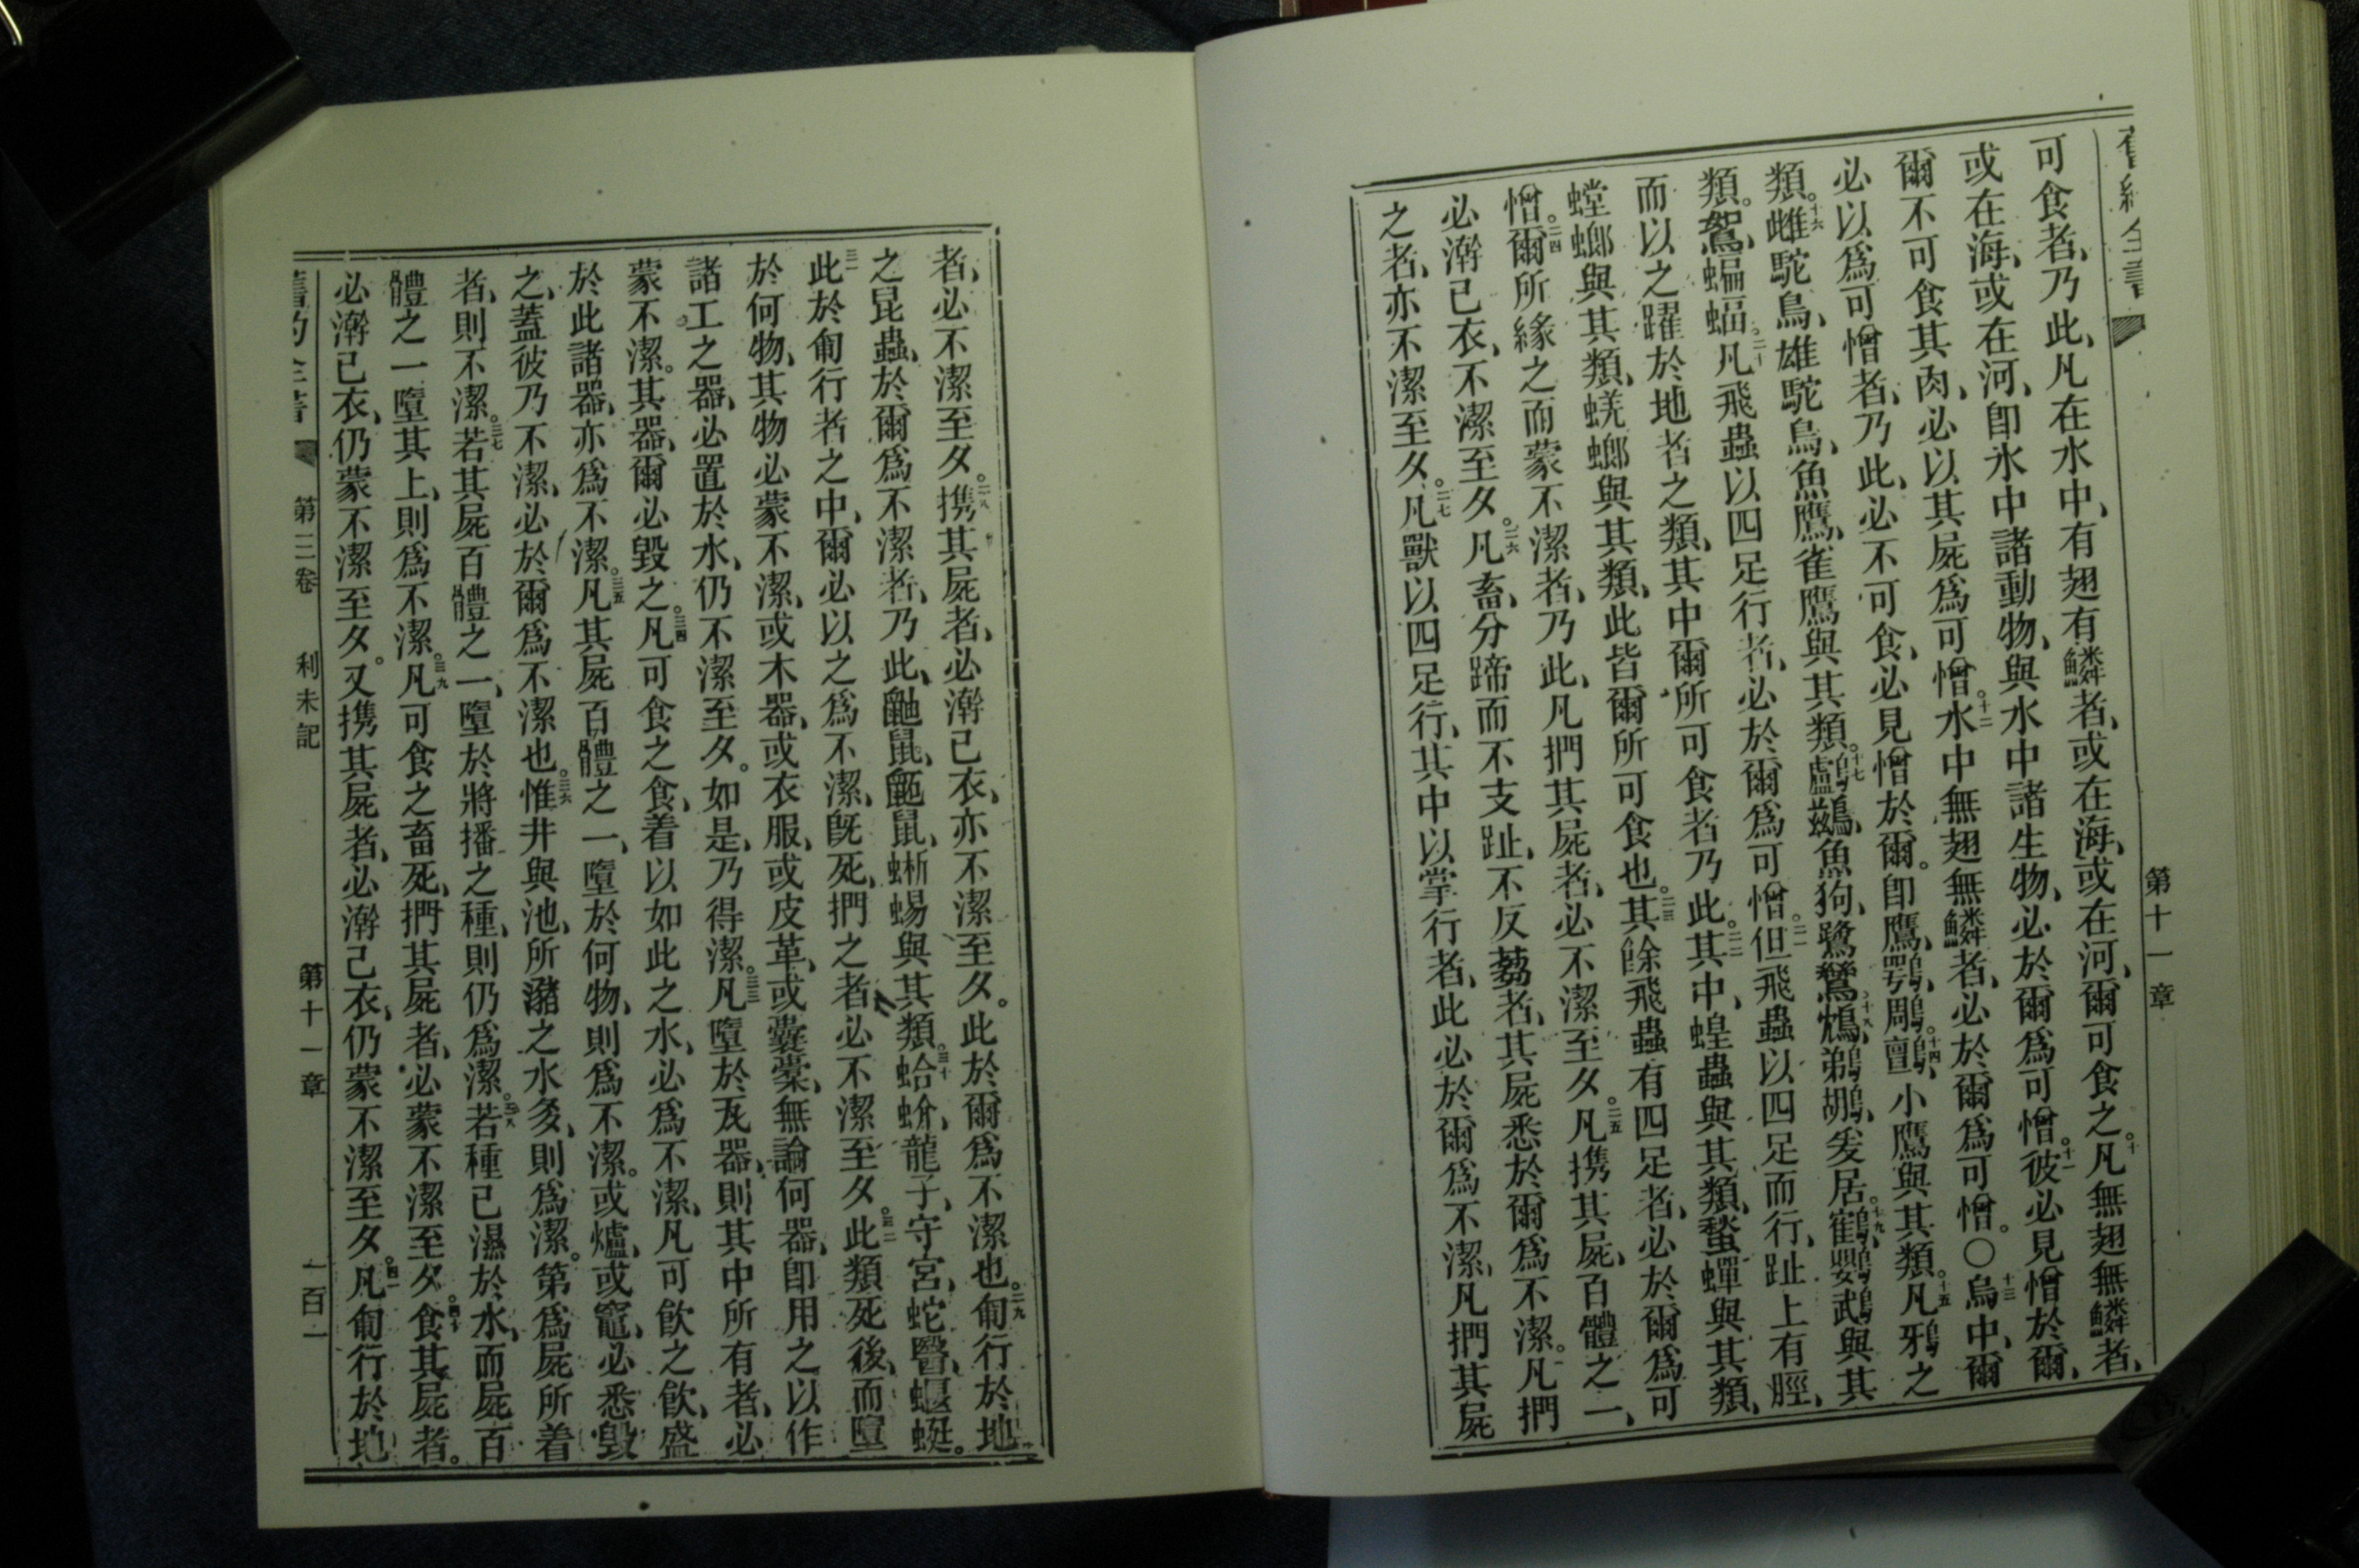 第十一章
可食者、乃此、凡在水中、有翅有鱗者、或在海、或在河、爾可食之。十凡無翅無鱗者、
或在海、或在河、卽水中諸動物、與水中諸生物、必於爾爲可憎。十一彼必見憎於爾、
爾不可食其肉、必以其屍爲可憎。十二水中無翅無鱗者、必於爾爲可憎。〇十三鳥中、爾
必以爲可憎者、乃此、必不可食、必見憎於爾。卽鷹、鶚、鵰。十四鸇、小鷹與其類。十五凡鴉之
類。十六雌駝鳥、雄駝鳥、魚鷹、雀鷹與其類。十七鸕鷀、魚狗、鷺鷥、十八鵜鶘、爰居。十九鸛、鸚鵡與其
類。鴽、蝙蝠。二十凡飛蟲以四足行者、必於爾爲可憎。二一但飛蟲以四足而行、趾上有脛、
而以之躍於地者之類、其中爾所可食者乃此。二二其中、蝗蟲與其類、蝥蟬與其類、
螳螂與其類、蜣螂與其類、此皆爾所可食也。二三其餘飛蟲有四足者、必於爾爲可
憎。二四爾所緣之而蒙不潔者、乃此、凡捫其屍者、必不潔至夕。二五凡攜其屍、百體之一、
必澣己衣、不潔至夕。二六凡畜、分蹄而不支趾、不反芻者、其屍悉於爾爲不潔。凡捫
之者、亦不潔至夕。二七凡獸以四足行、其中以掌行者、此必於爾爲不潔、凡捫其屍
者、必不潔至夕。二八攜其屍者、必澣己衣、亦不潔至夕。此於爾爲不潔也。二九匍行於地
之昆蟲、於爾爲不潔者、乃此、鼬鼠、鼫鼠、蜥蜴與其類。三十蛤蚧、龍子、守宮、蛇醫、蝘蜓。
三一此於匍行者之中、爾必以之爲不潔、旣死、捫之者、必不潔至夕。三二此類死後、而墮
於何物、其物必蒙不潔、或木器、或衣服、或皮革、或囊橐、無論何器、卽用之以作
諸工之器、必置於水、仍不潔至夕。如是、乃得潔。三三凡墮於瓦器、則其中所有者、必
蒙不潔。其器、爾必毀之。三四凡可食之食、着以如此之水、必爲不潔、凡可飮之飮、盛
於此諸器、亦爲不潔。三五凡其屍百體之一、墮於何物、則爲不潔。或爐、或竈、必悉毀
之、蓋彼乃不潔、必於爾爲不潔也。三六惟井與池、所瀦之水多、則爲潔。第爲屍所着
者、則不潔。三七若其屍百體之一、墮於將播之種、則仍爲潔。三八若種已濕於水、而屍百
體之一墮其上、則爲不潔。三九凡可食之畜死、捫其屍者、必蒙不潔至夕。四十食其屍者。
必澣己衣、仍蒙不潔至夕。又攜其屍者、必澣己衣、仍蒙不潔至夕。四一凡匍行於地
第三卷 利未記 第十一章 一百一